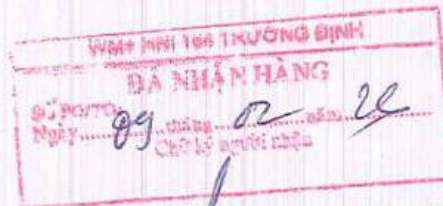 WM+ HNI 166 TRƯƠNG ĐỊNH
ĐÃ NHẬN HÀNG
SỐ PO/TO:
Ngày 09 tháng 02 năm
Chữ ký người nhận